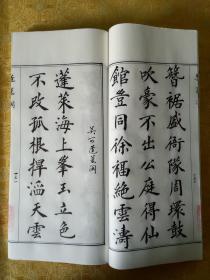 簪裾盛衙隊周環鼓
吹豪不出公庭得仙
館登同徐福絶雲濤
吴公蓬莱阁
蓬萊海上峯玉立色
不改孤根捍滔天雲